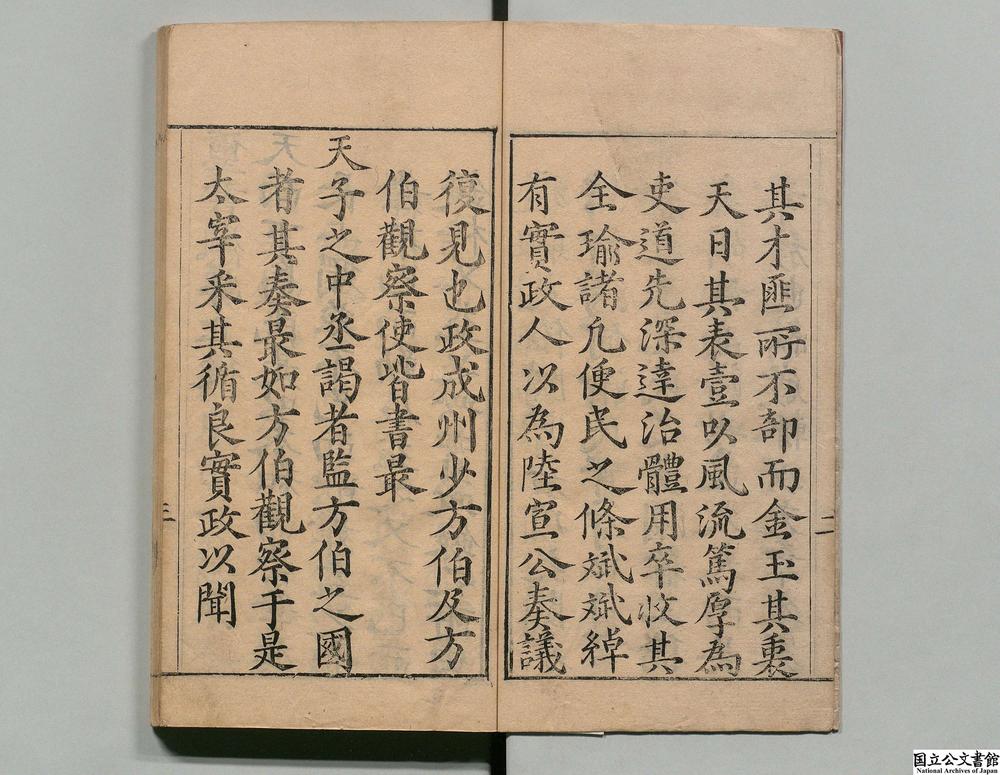 其才匪所不部而金玉其裏
天日其表壹以風流篤厚為
吏道先深達治體用卒收其
全瑜諸凡便民之條斌斌綽
有實政人以為陸宣公奏議
二
復見也政成州少方伯及方
伯觀察使皆書最
天子之中丞謁者監方伯之國
者其奏最如方伯觀察于是
太宰釆其循良實政以聞
三
国立公文書館
National Archives of Japan